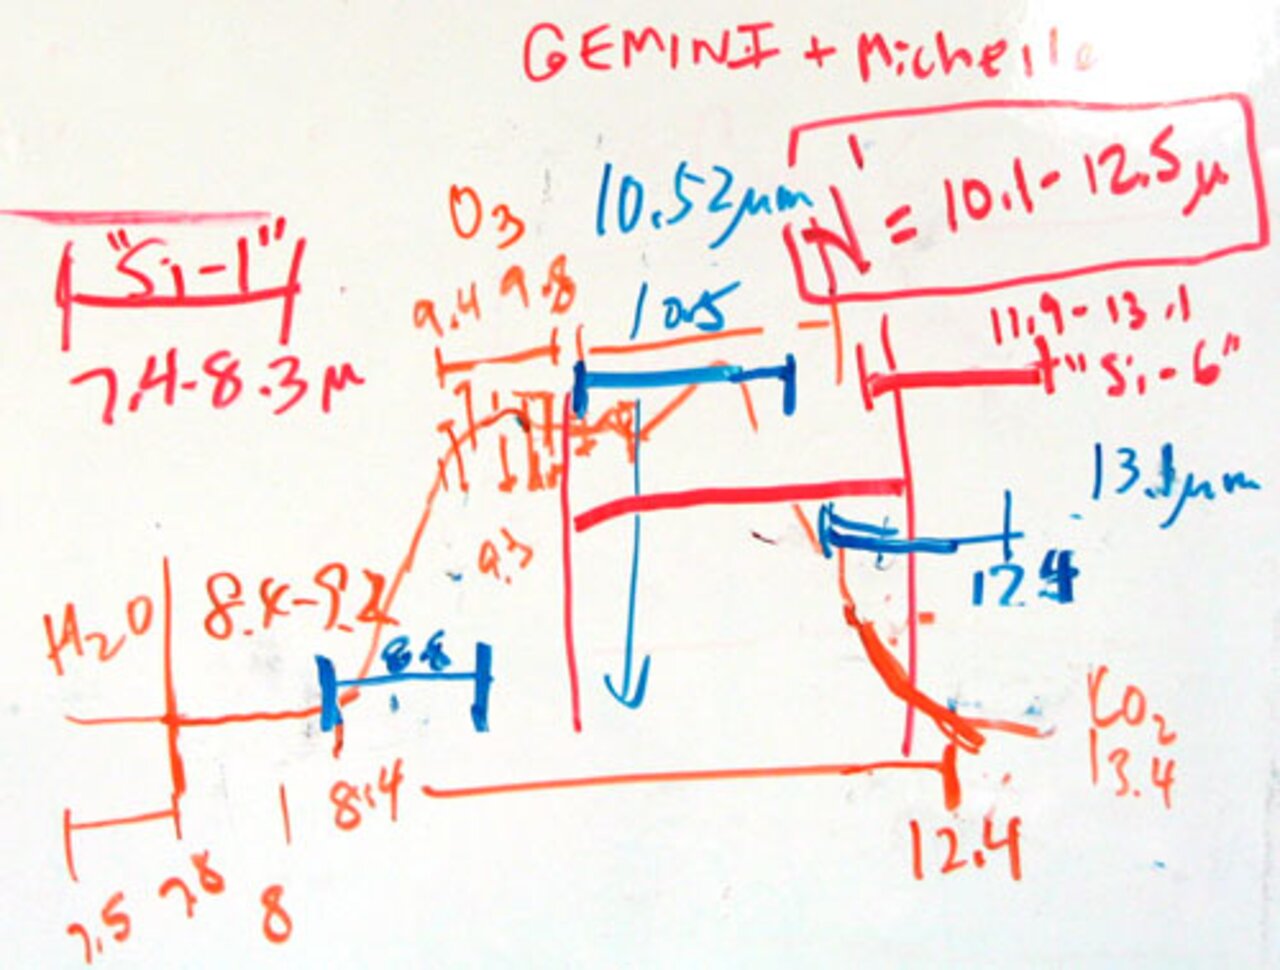 GEMINI + Michelle
N' = 10.1-12.5μ
10.52μm
O3
"Si-1"
7.4-8.3μ
9.4 9.8
10.5
11.9-13.1
"Si-6"
13.1μm
9.3
12.4
H2O
8.4-9.2
8.8
CO2
13.4
8.4
12.4
7.5 7.8
8